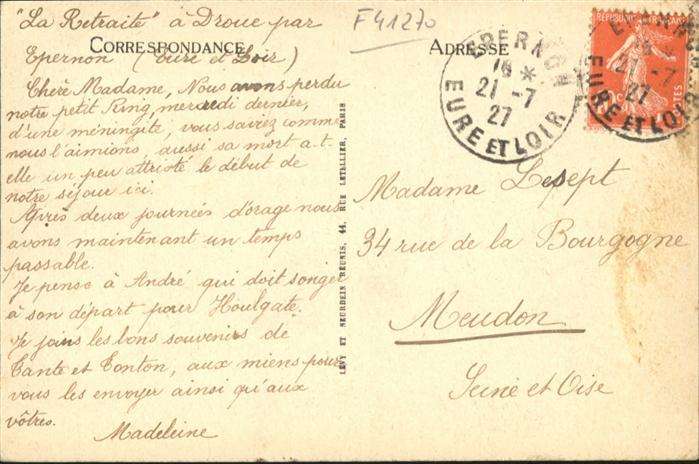 "La Retraite" à Droue par
Epernon (Eure et Loir)
CORRESPONDANCE
Chère Madame, Nous avons perdu
notre petit Ring, mercredi dernier,
d'une méningite, vous saviez comme
nous l'aimions, aussi sa mort a-t-
elle un peu attristé le début de
notre séjour ici.
Après deux journées d'orage nous
avons maintenant un temps
passable.
Je pense à André qui doit songer
à son départ pour Houlgate.
Je joins les bons souvenirs de
Tante et Tonton, aux miens pour
vous les envoyer ainsi qu'aux
vôtres.
Madeleine
LÉVY ET NEURDEIN RÉUNIS, 44, RUE LETELLIER, PARIS
F41270
ADRESSE
EPERNON
16 *
21 -7
27
EURE ET LOIR
21 -7
27
EURE ET LOIR
Madame Lesept
34 rue de la Bourgogne
Meudon
Seine et Oise